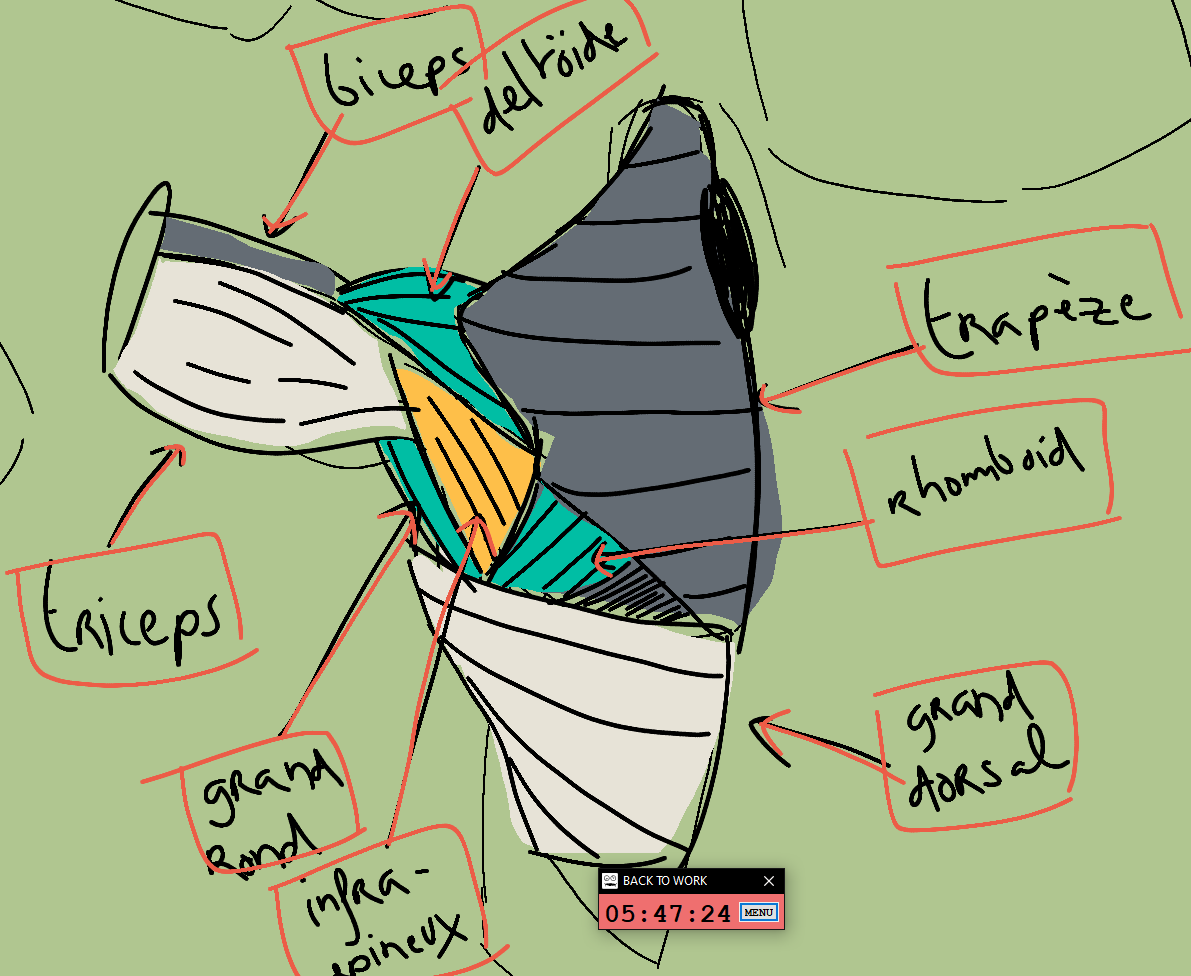 biceps
deltöide
trapèze
rhomboid
triceps
grand
dorsal
grand
Rond
infra-
epineux
BACK TO WORK
05:47:24
MENU